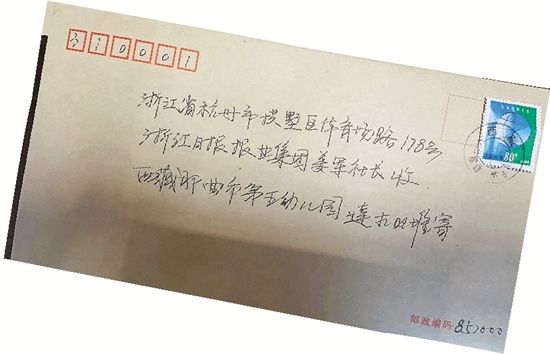 310001
浙江省杭州市拱墅区体育场路178号
浙江日报报业集团姜军社长收
西藏那曲市第五幼儿园 达扎旺堆寄
80分
邮政编码:852000